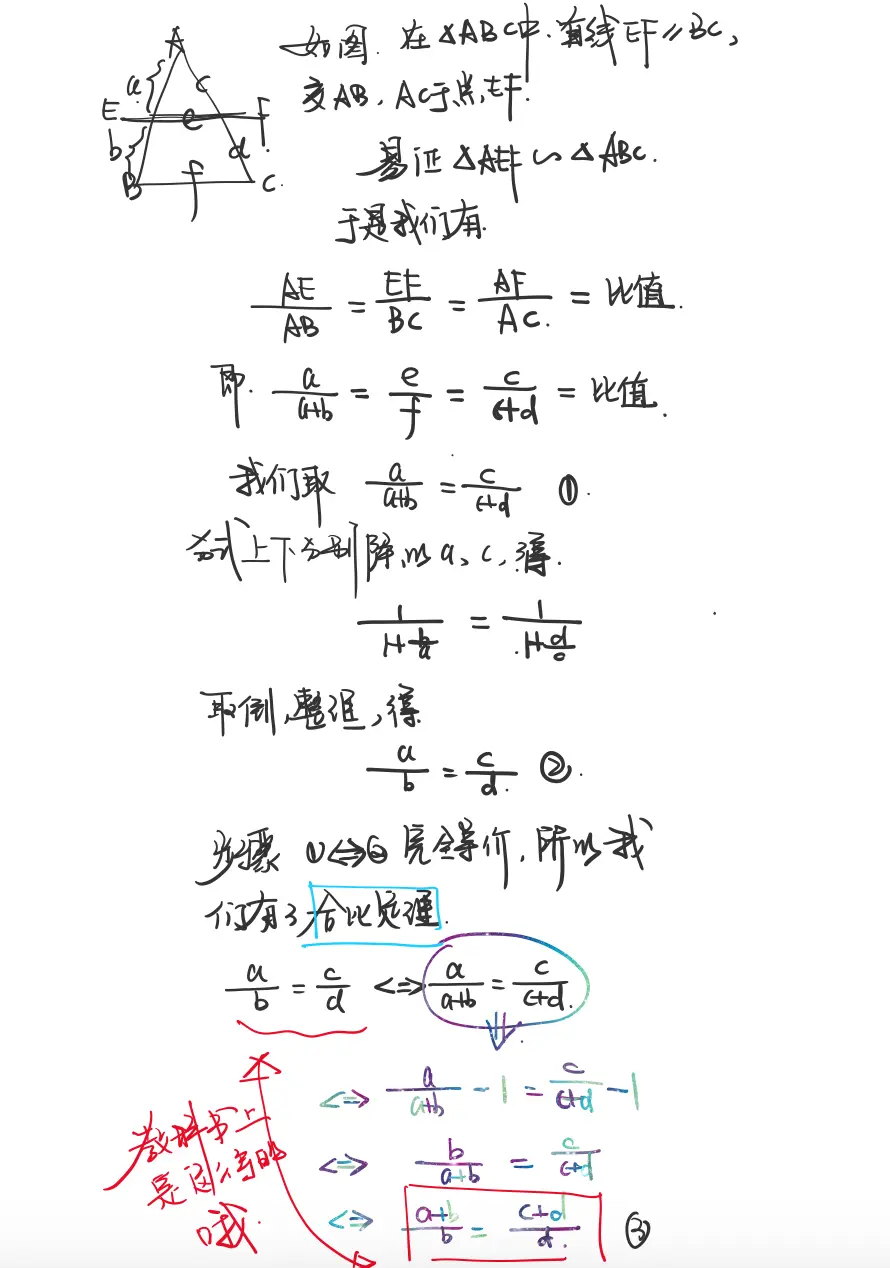 如图.在△ABC中.有线EF∥BC,
交AB、AC于点E,F.
易证△AEF∽△ABC.
于是我们有
A
a
c
E
e
F
b
d
B
f
C
AE/AB = EF/BC = AF/AC = 比值.
即. a/(a+b) = e/f = c/(c+d) = 比值.
我们取 a/(a+b) = c/(c+d) ①.
分式上下分别除以a、c,得.
1/(1+b/a) = 1/(1+d/c)
取倒,整理,得
a/b = c/d ②.
步骤①⇔②完全等价,所以我
们有了合比定理.
a/b = c/d <=> a/(a+b) = c/(c+d)
<=> a/(a+b) - 1 = c/(c+d) - 1
<=> b/(a+b) = c/(c+d)
<=> (a+b)/b = (c+d)/d. ③
教科书上
是这么写的
哦.